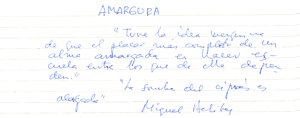 AMARGURA
"Tuve la idea vergonzosa
de que el placer más completo de un
alma amargada es hacer es-
cuela entre los que de ella depen-
den."
"La sombra del ciprés es
alargada"
Miguel Delibes